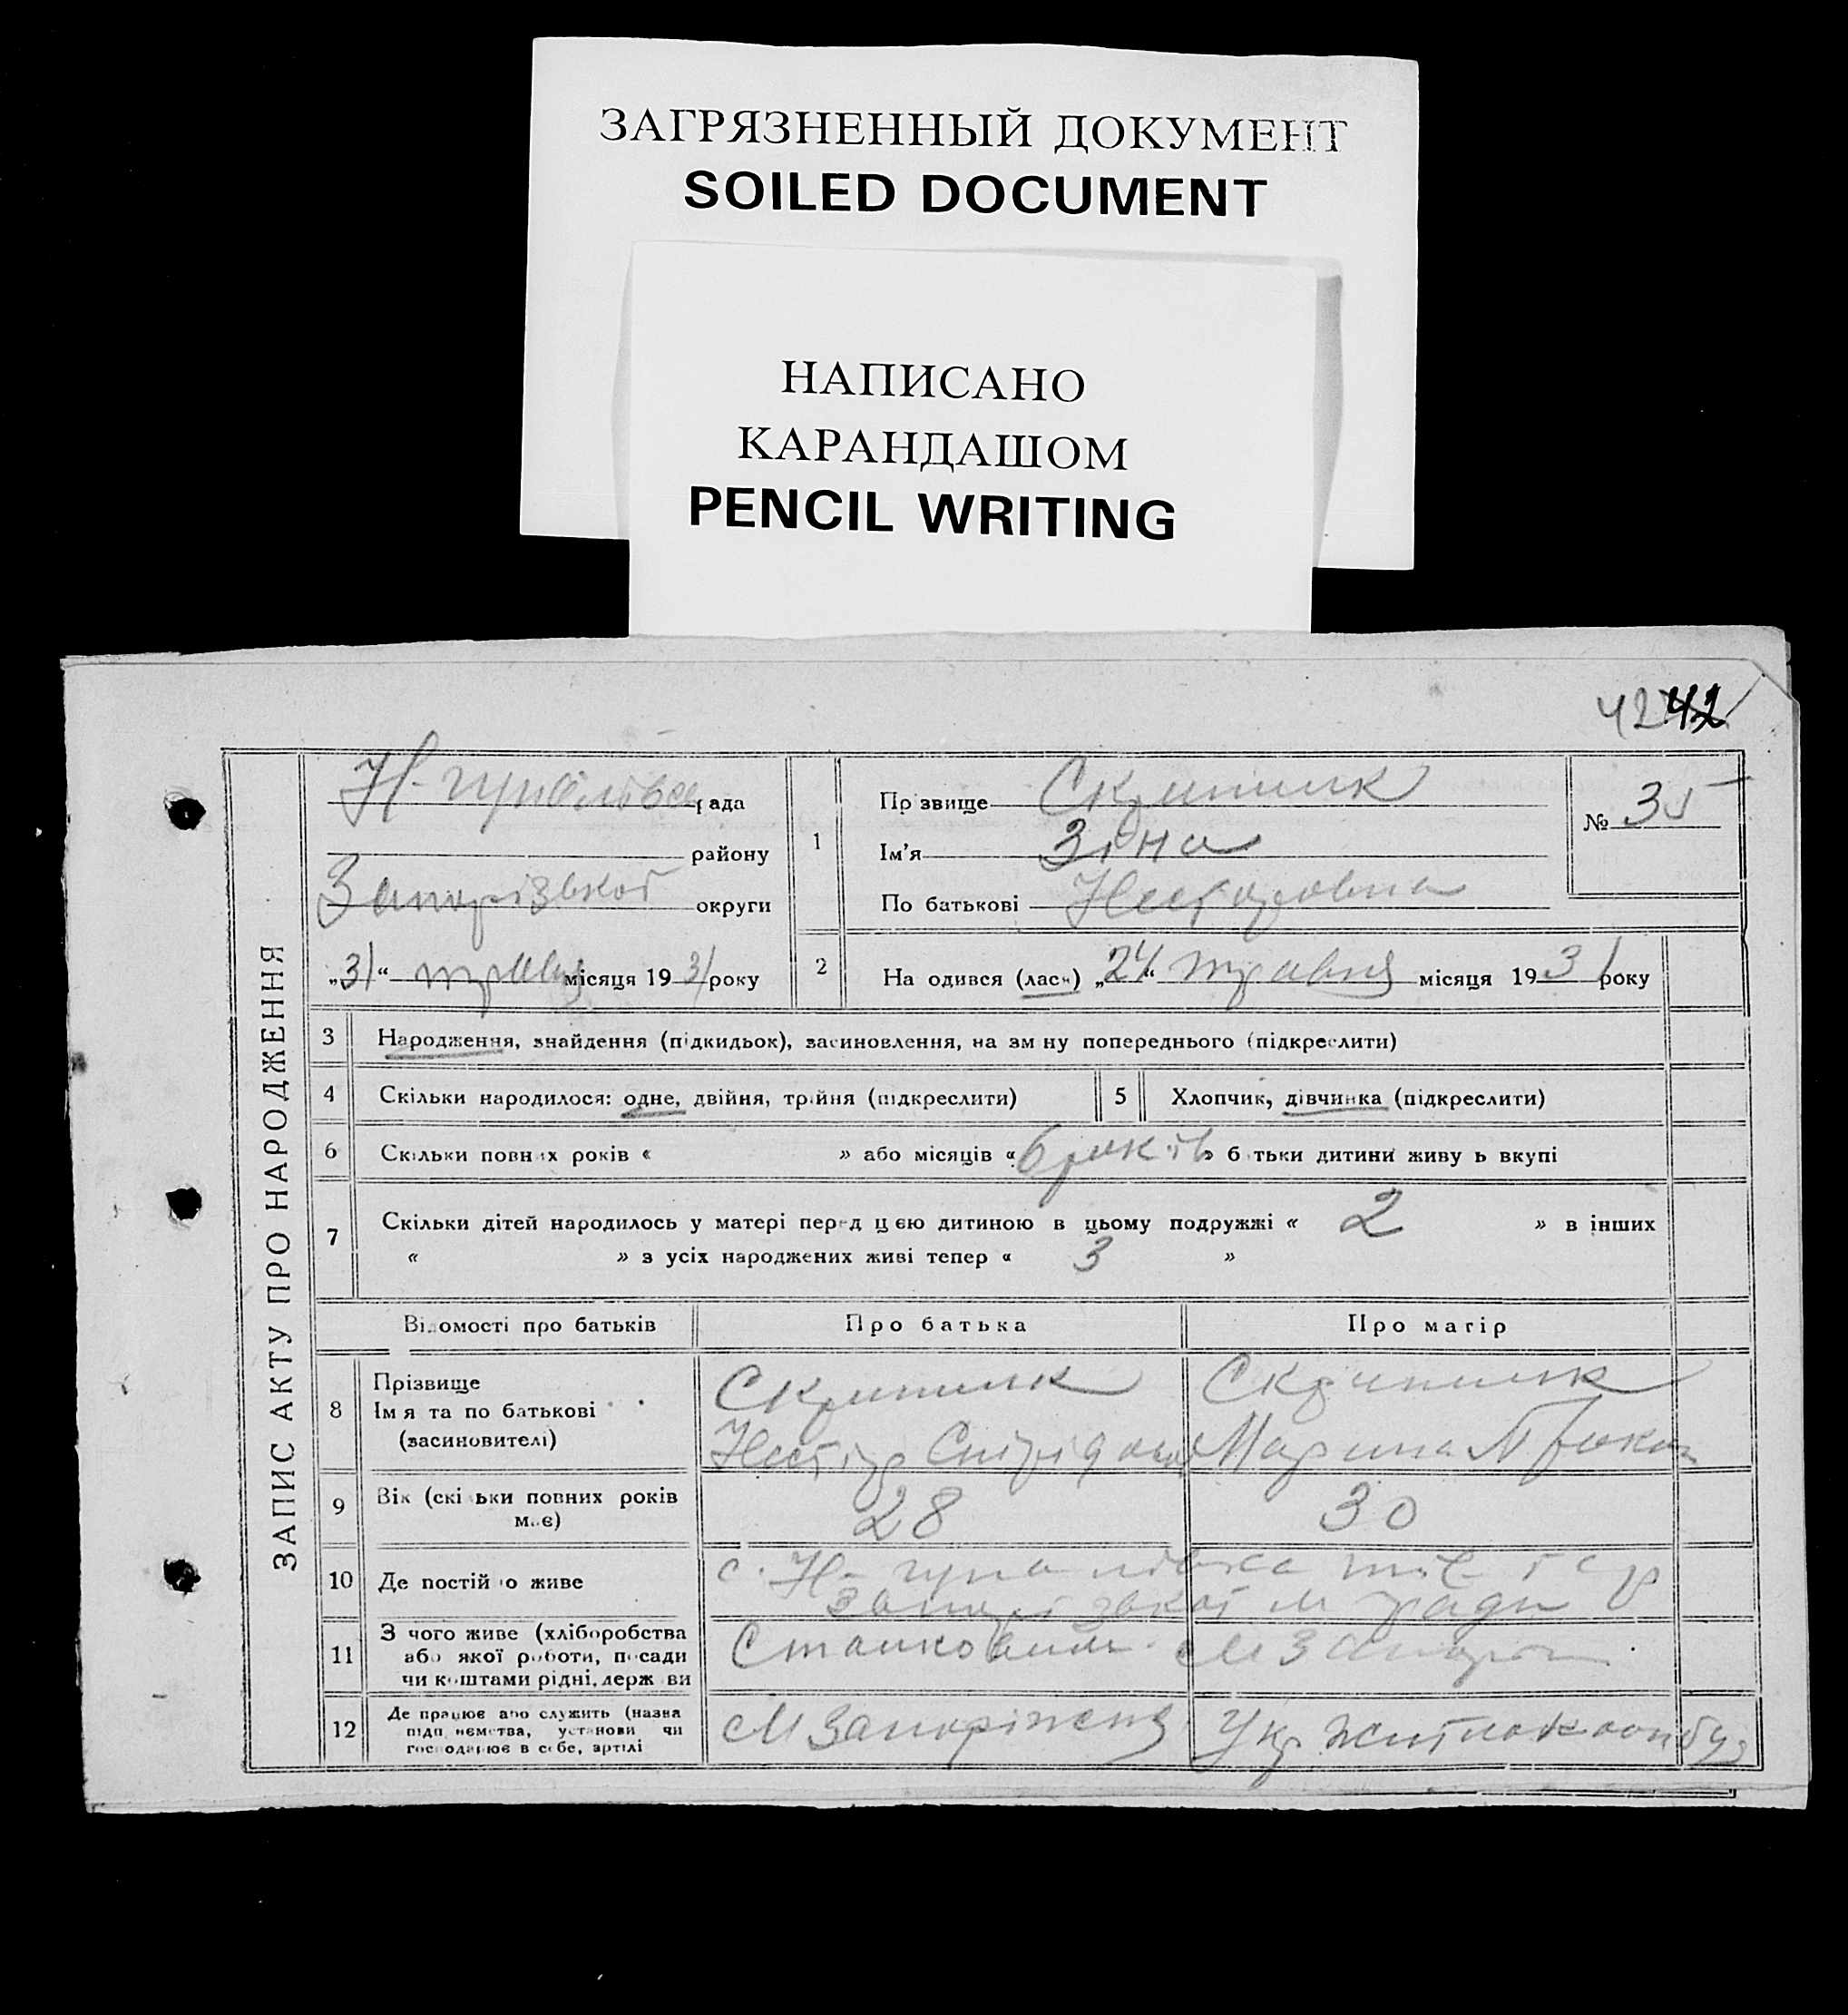 ЗАГРЯЗНЕННЫЙ ДОКУМЕНТ
SOILED DOCUMENT
НАПИСАНО
КАРАНДАШОМ
PENCIL WRITING
42 42
ЗАПИС АКТУ ПРО НАРОДЖЕННЯ
рада
району
Запорізької округи
„31“ травня місяця 1931 року
1
Прізвище Скрипник
Ім'я Зіна
По батькові Несторовна
№ 35
2 На одився (лась) „24“ травня місяця 1931 року
3 Народження, знайдення (підкидьок), засиновлення, на зм ну попереднього (підкреслити)
4 Скільки народилося: одне, двійня, трійня (підкреслити) 5 Хлопчик, дівчинка (підкреслити)
6 Скільки повних років « » або місяців « 6 років » б тьки дитини живу ь вкупі
7 Скільки дітей народилось у матері перед цією дитиною в цьому подружжі « 2 » в інших
« » з усіх народжених живі тепер « 3 »
Відомості про батьків Про батька Про матір
8 Прізвище
Ім я та по батькові
(засиновителі)
Скрипник Скрипник
Нестір Спірідон Марина
9 Вік (скі ьки повних років має)
28 30
10 Де постійно живе
с. Н-
Запорізької м ради
11 З чого живе (хліборобства
або якої роботи, посади
чи коштами рідні, держ ви
12 Де працює або служить (назва
підп иємства, установи чи
господарює в себе, артілі
М Запоріжжя